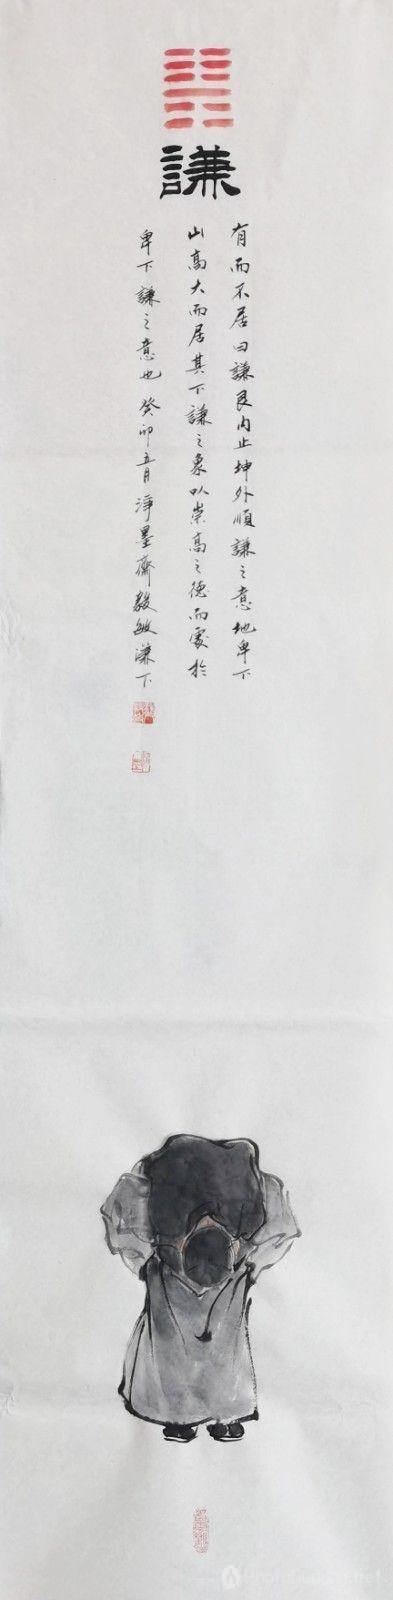 謙
有而不居曰謙艮内止坤外順謙之意地卑下
山高大而居其下謙之象以崇高之德而處於
卑下謙之意也 癸卯五月淨墨齋毅敏謙下